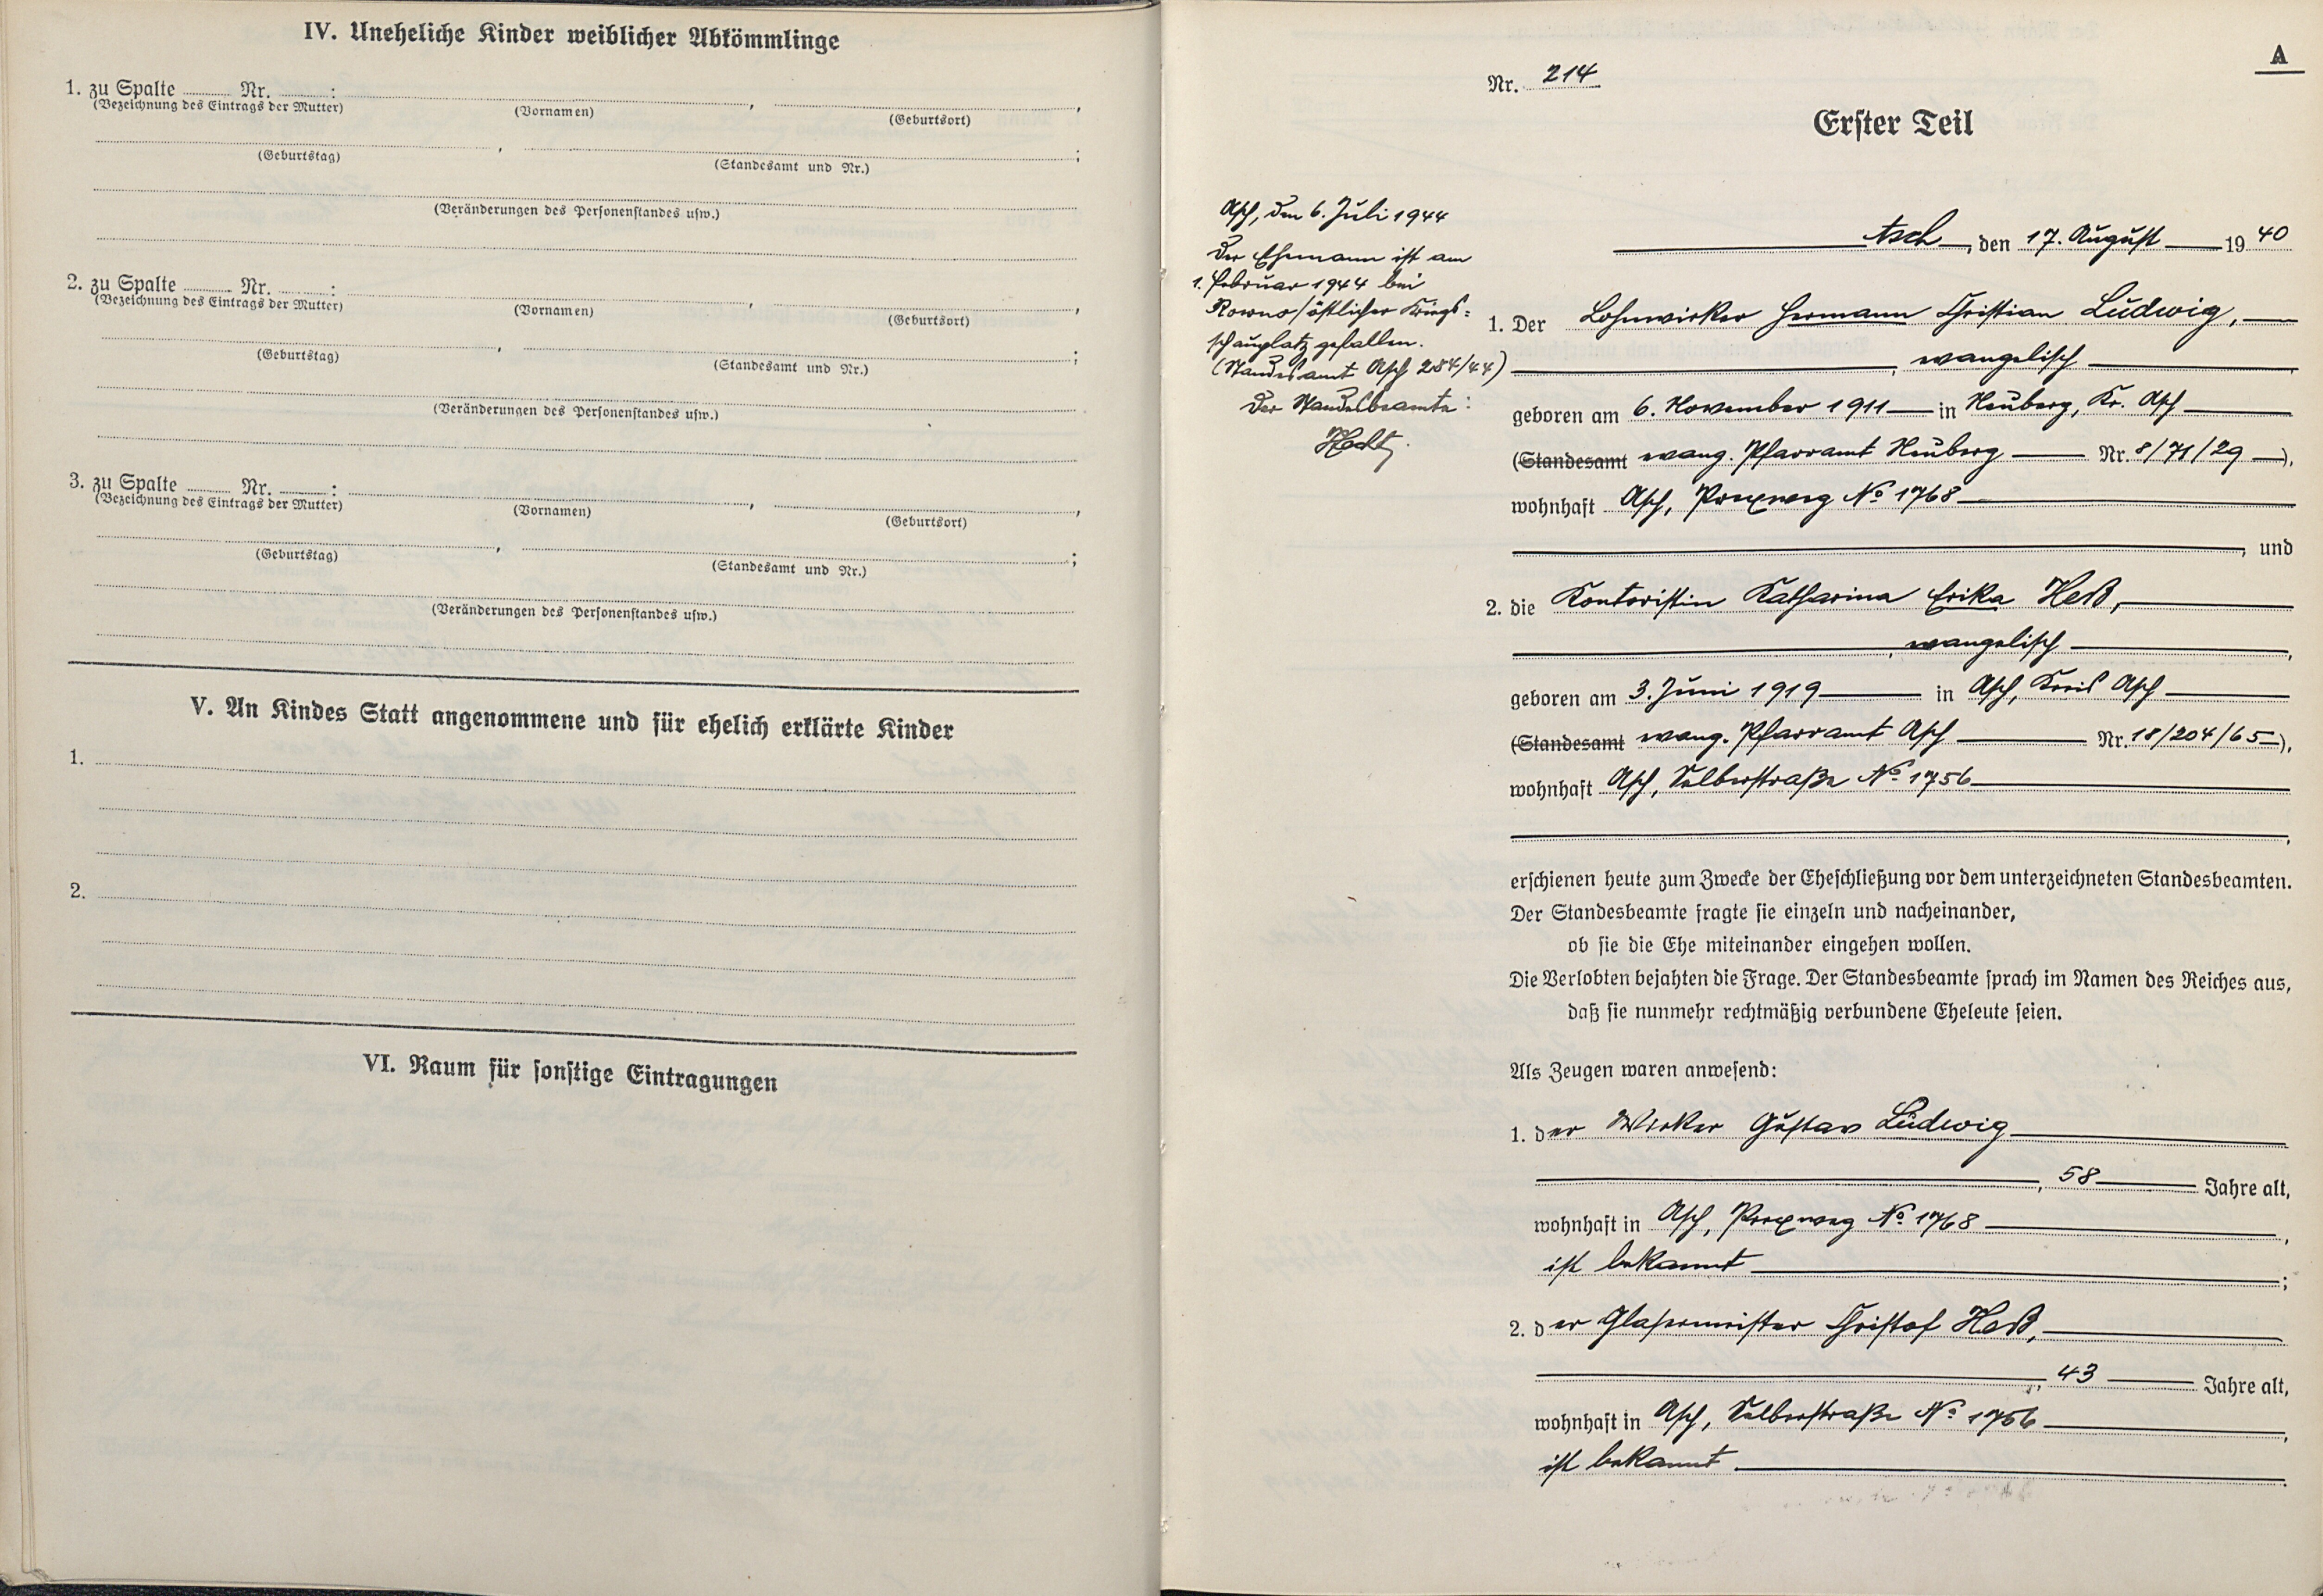 IV. Uneheliche Kinder weiblicher Abkömmlinge
1. zu Spalte ........ Nr. ........ :
(Bezeichnung des Eintrags der Mutter) (Vornamen) (Geburtsort)
(Geburtstag) (Standesamt und Nr.)
(Veränderungen des Personenstandes usw.)
2. zu Spalte ........ Nr. ........ :
(Bezeichnung des Eintrags der Mutter) (Vornamen) (Geburtsort)
(Geburtstag) (Standesamt und Nr.)
(Veränderungen des Personenstandes usw.)
3. zu Spalte ........ Nr. ........ :
(Bezeichnung des Eintrags der Mutter) (Vornamen) (Geburtsort)
(Geburtstag) (Standesamt und Nr.)
(Veränderungen des Personenstandes usw.)
V. An Kindes Statt angenommene und für ehelich erklärte Kinder
1.
2.
VI. Raum für sonstige Eintragungen
A
Nr. 214
Erster Teil
Asch, den 6. Juli 1944
Der Ehemann ist am
1. Februar 1944 bei
Rowno/östlicher Kriegs-
schauplatz gefallen.
(Standesamt Asch 284/44)
Der Standesbeamte:
Asch, den 17. August 1940
1. Der Lohnwirker Hermann Christian Ludwig,
, evangelisch
geboren am 6. November 1911 in Neuberg, Kr. Asch
(Standesamt evang. Pfarramt Neuberg Nr. 8/71/29),
wohnhaft Asch, Prexweg No 1768
, und
2. die Kontoristin Katharina Erika Heß,
, evangelisch,
geboren am 3. Juni 1919 in Asch, Kreis Asch
(Standesamt evang. Pfarramt Asch Nr. 18/204/65),
wohnhaft Asch, Selberstraße No 1756
erschienen heute zum Zwecke der Eheschließung vor dem unterzeichneten Standesbeamten.
Der Standesbeamte fragte sie einzeln und nacheinander,
ob sie die Ehe miteinander eingehen wollen.
Die Verlobten bejahten die Frage. Der Standesbeamte sprach im Namen des Reiches aus,
daß sie nunmehr rechtmäßig verbundene Eheleute seien.
Als Zeugen waren anwesend:
1. der Wirker Gustav Ludwig
, 58 Jahre alt,
wohnhaft in Asch, Prexweg No 1768,
ist bekannt;
2. der Glasermeister Christof Heß,
, 43 Jahre alt,
wohnhaft in Asch, Selberstraße No 1756,
ist bekannt.